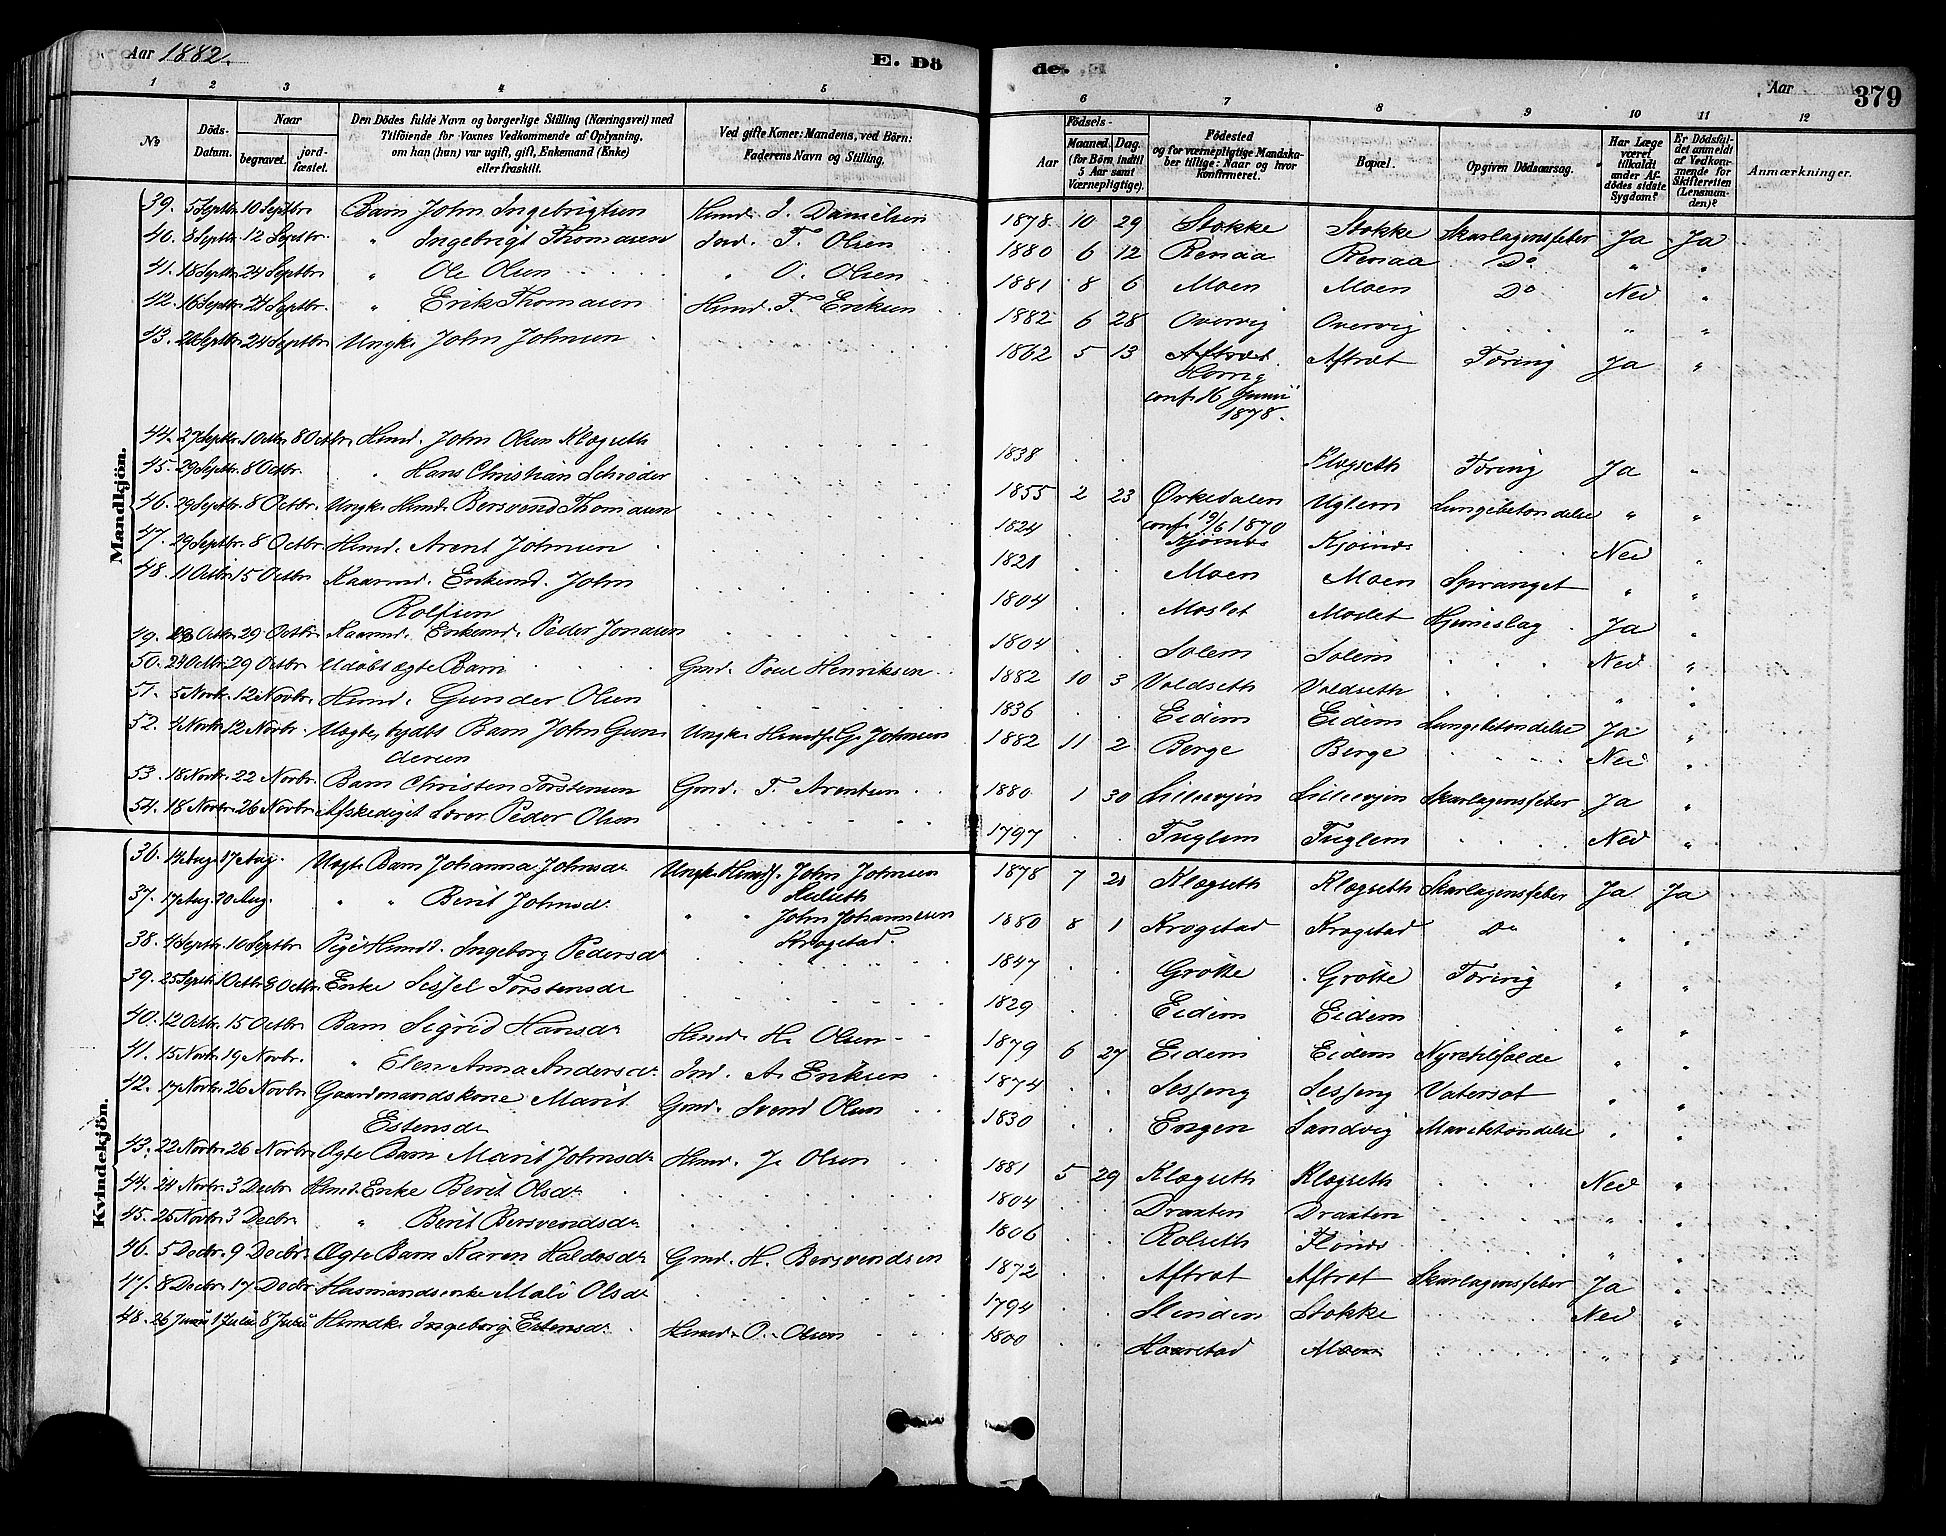 Aar 1882. E. Dö de. Aar 379
1 2 3 4 5 6 7 8 9 10 11 12
No
Döds-Datum.
Naar begravet. jordfæstet.
Den Dödes fulde Navn og borgerlige Stilling (Næringsvei) med Tilföiende for Voxnes Vedkommende af Oplysning, om han (hun) var ugift, gift, Enkemand (Enke) eller fraskilt.
Ved gifte Koner: Mandens, ved Börn: Faderens Navn og Stilling.
Födsels- Aar Maaned. Dag. (for Börn indtil 5 Aar samt Værnepligtige).
Födested og for værnepligtige Mandskaber tillige: Naar og hvor konfirmeret.
Bopæl.
Opgiven Dödsaarsag.
Har Læge været tilkaldt under Afdödes sidste Sygdom?
Er Dödsfaldet anmeldt af Vedkommende for Skifteretten (Lensmanden)?
Anmærkninger.
Mandkjön.
39. 5 Septbr. 10 Septbr Barn John Ingebrigtsen Husmd. I. Danielsen 1878 10 29 Stokke Stokke Skarlagensfeber Ja Ja
40. 8 Septbr. 12 Septbr. " Ingebrigt Thomasen Ind. T. Olsen 1880 6 12 Renaa Renaa Do " "
41. 18 Septbr. 24 Septbr " Ole Olsen " O. Olsen 1881 8 6 Moen Moen Do Nei "
42. 16 Septbr. 24 Septbr. " Erik Thomasen Husmd. T. Eriksen 1882 6 28 Overvig Overvig " "
43. 20 Septbr. 24 Septbr Ungk. John Johnsen 1862 5 13 Aftret Aftræt Tæring Ja "
conf. 16 Junii
1878.
44. 27 Septbr. 1 Octbr 8 Octbr Husmd. John Olsen Klægseth 1838 Klægseth Tæring Ja "
45. 29 Septbr. 8 Octbr. " Hans Christian Schrøder 1855 2 23 Ørkedalen Uglem Lungebetændelse " "
conf. 19/6 1870
46. 29 Septbr. 8 Octbr. Ungk. Husmd. Bersvend Thomasen 1824 Kjøsnæs Kjøsnæs Nei "
47. 29 Septbr. 8 Octbr Husmd. Arent Johnsen 1821 Moen Moen Spranget " "
48. 11 Octbr. 15 Octbr Kaarmd. Enkemd. John
Rolfsen 1804 Moslet Moslet Hjerneslag Ja "
49. 23 Octbr. 29 Octbr Kaarmd. Enkemd. Peder Jonasen 1804 Solem Solem Nei "
50. 24 Octbr. 29 Octbr Udøbt ægte Barn Gmd. Poul Henriksen 1882 10 3 Valdseth Valdseth " "
51. 5 Novbr. 12 Novbr. Husmd. Gunder Olsen 1836 Eidem Eidem Lungebetændelse Ja "
52. 4 Novbr. 12 Novbr. Uægte, hjdbt Barn John Gun
dersen Ungk. Husmdf. G. Johnsen 1882 11 2 Berge Berge Nei "
53. 18 Novbr. 22 Novbr. Barn Christen Torstensen Gmd. T. Arentsen 1880 1 30 Lillevjen Lillevjen Skarlagensfeber Ja "
54. 18 Novbr. 26 Novbr Afskediget Lærer Peder Olsen 1797 Fuglem Fuglem Nei "
Kvindekjön.
36. 14 Aug. 17 Aug. Uægte Barn Johanna Johnsdr. Ungk. Husmdf. John Johnsen 1878 7 21 Klægseth Klægseth Skarlagensfeber Ja Ja
37. 17 Aug. 20 Aug. " " Berit Johnsdr. " " John Johannesen
Krogstad. 1880 8 1 Krogstad Krogstad Do " "
38. 4 Septbr. 10 Septbr. Pige Husmdt. Ingeborg Pedersdr 1847 Grøtte Grøtte Tæring " "
39. 25 Septbr. 1 Octbr. 8 Octbr. Enke Sissel Torstensdr 1829 Eidem Eidem " "
40. 12 Octbr. 15 Octbr Barn Sigrid Hansdr Husmd. H. Olsen 1879 6 27 Eidem Eidem Nyretilfælde " "
41. 15 Novbr. 19 Novbr. " Elen Anna Andersdr. Ind. A. Eriksen 1874 Sesseng Sesseng Vatersot " "
42. 17 Novbr. 26 Novbr Gaardmandskone Marit
Estensdr Gmd. Svend Olsen 1830 Engen Sandvig Mavebetændelse " "
43. 22 Novbr. 26 Novbr Ægte Barn Marit Johnsdr. Husmd. J. Olsen 1881 5 29 Klægseth Klægseth Nei "
44. 24 Novbr. 3 Decbr. Husmd. Enke Berit Olsdr. 1804 Draxten Draxten " "
45. 25 Novbr 3 Decbr " Berit Bersvendsdr 1806 Rolseth Flønæs " "
46. 5 Decbr. 9 Decbr. Ægte Barn Karen Haldosdr Gmd. H. Bersvendsen 1872 Aftret Aftret Skarlagensfeber Ja "
47. 8 Decbr. 17 Decbr Husmandsenke Mali Olsdr 1794 Slinden Stokke Nei "
48. 26 Junii 1 Julii 8 Julii Husmdk. Ingeborg Estensdr. Husmd. O. Olsen 1800 Haarstad Moen " "